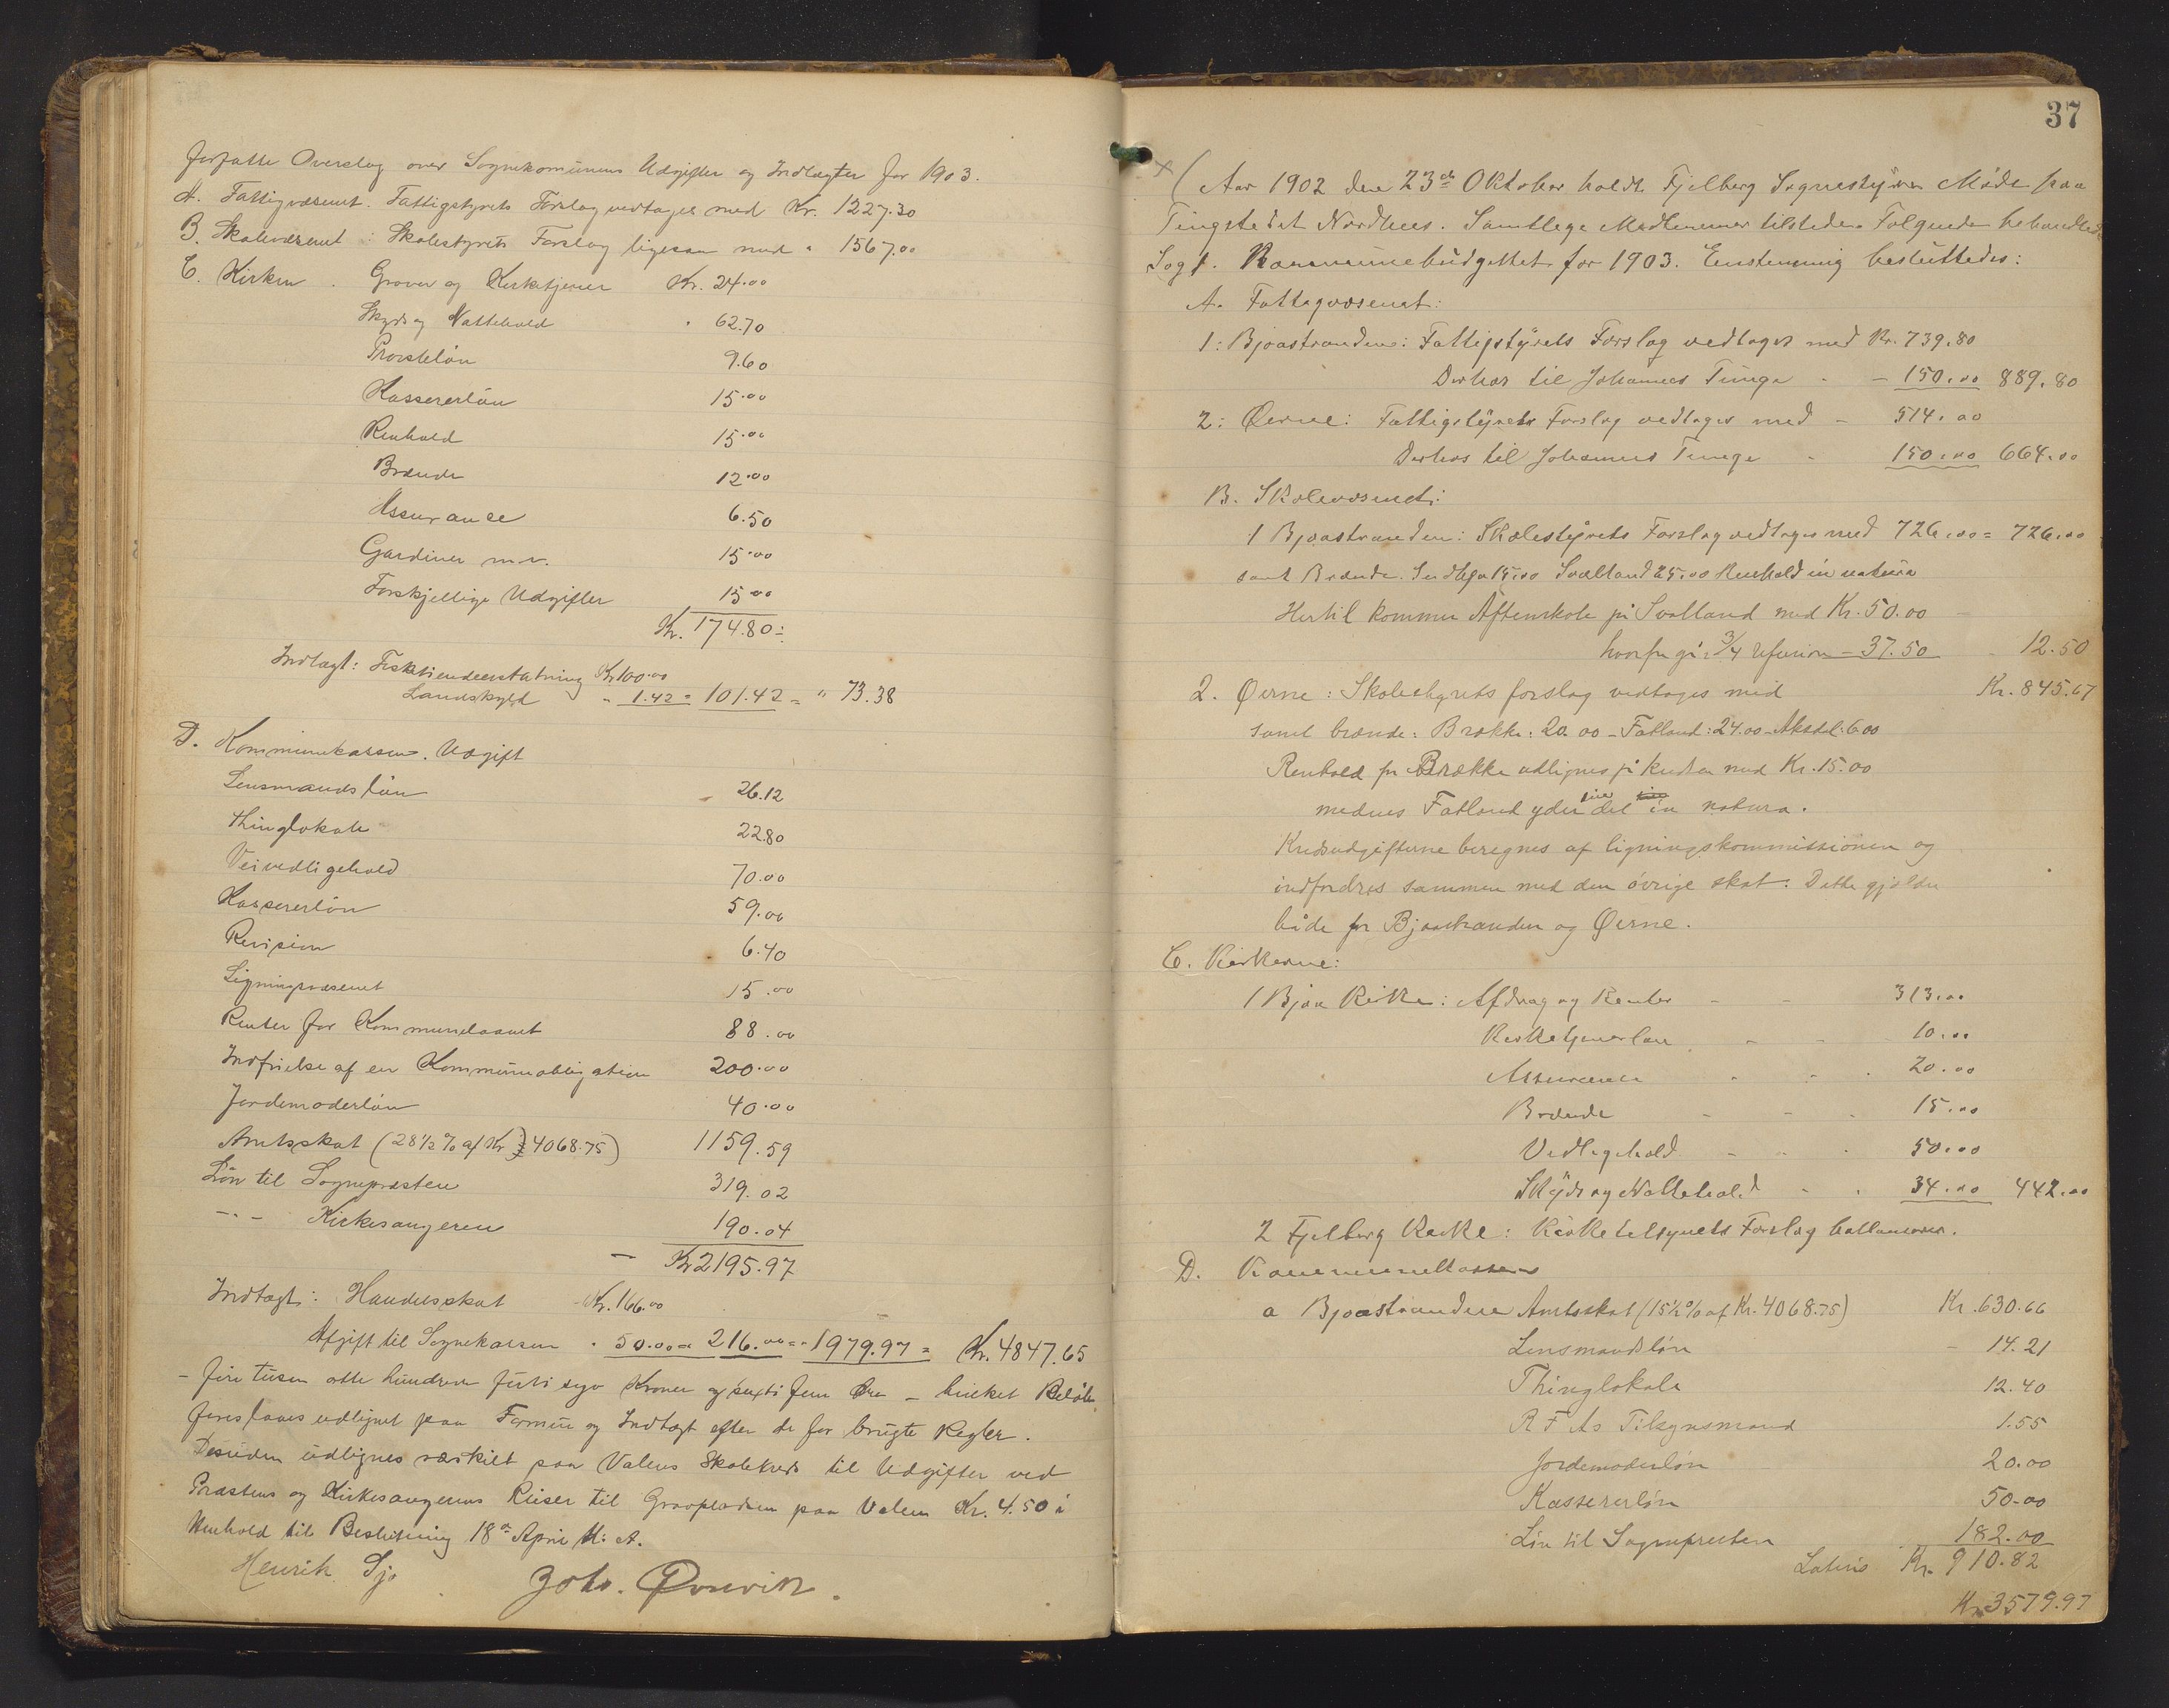 forfatte Overslag over Sognekomunens Udgifter og Indtægter for 1903.
A. Fattigvæsenet. Fattigstyrets Forslag vedtages med Kr. 1227.30
B. Skolevæsenet : Skolestyrets Forslag ligesaa med " 1567.00
C. Kirken . Graver og Kirketjener Kr. 24.00
Skyds og Nattehold " 62.70
Provsteløn 9.60
Kassererløn 15.00
Renhold 15.00
Brænde 12.00
Assurance 6.50
Gardiner m.v. 15.00
Forskjellige Udgifter 15.00
Kr. 174.80
Indtægt: Fisketiendeerstatning Kr 100.00
Landskyld - 1.42 = 101.42 = " 73.38
D. Kommunekassen. Udgift
Lensmandsløn 26.12
Thinglokale 22.80
Veivedligehold 70.00
Kassererløn 59.00
Revision 6.40
Ligningsvæsenet 15.00
Renter for Kommunelaanet 88.00
Indfrielse af en Kommuneobligation 200.00
Jordemoderløn 40.00
Amtsskat (28½ % af Kr 4068.75) 1159.59
Løn til Sognepresten 319.02
-"- Kirkesangeren 190.04
Kr 2195.97
Indtægt: Handelsskat Kr. 166.00
Afgift til Sognekassen " 50.00 = 216.00 = 1979.97 = Kr. 4847.65
- fire tusen otte hundrede førti syv Kroner og sexti fem Øre - hvilket Beløb
foreslaaes udlignet paa Formue og Indtægt efter de før brugte Regler.
Desuden udlignes særskilt paa Valens Skolekreds til Udgifter ved
Præstens og Kirkesangerens Reiser til Gravpladsen paa Valen Kr. 4.50 i
Henhold til Beslutning 18de April d. A.
Henrik Sjo Johs. Øvrevik.
37
Aar 1902 den 23de Oktober holdt Fjelberg Sognestyre Møde paa
Tingstedet Nordhus. Samtlege Medlemmer tilstede. Følgende behandledes
Sag 1. Kommunebudgettet for 1903. Enstemmig besluttedes:
A. Fattigvæsenet:
1: Bjoastranden: Fattigstyrets Forslag vedtages med Kr. 739.80
Derhos til Johannes Tunge - - 150.00 889.80
2: Øerne: Fattigstyrets Forslag vedtages med - 514.00
Derhos til Johannes Tunge - 150.00 664.00
B. Skolevæsenet:
1 Bjoastranden: Skolestyrets Forslag vedtages med 726.00 = 726.00
samt Brænde. Indbjo 15.00 Svalland 25.00 Renhold in natura
Hertil kommer Aftenskole på Svalland med Kr. 50.00
hvorfra gå 3/4 refusion - 37.50 12.50
2. Øerne: Skolestyrets forslag vedtages med Kr. 845.67
samt brænde: Brække: 20.00 - Fatland: 24.00 - Aksdal: 6.00
Renhold for Brække udlignes på kredsen med Kr. 15.00
medens Fatland yder sine del in natura.
Kredsudgifterne beregnes af ligningskommissionen og
indfordres sammen med den øvrige skat. Dette gjælder
både for Bjoastranden og Øerne.
C. Kirkerne:
1 Bjoa Kirke: Afdrag og Renter - - 313.00
Kirketjenerløn - - 10.00
Assurance - - 20.00
Brænde - - - 15.00
Vedlegehold - - - 50.00
Skyds og Nattehold - - 34.00 442.00
2 Fjelberg Kirke: Kirketilsynets Forslag ballancerer.
D. Kommunekassen
a Bjoastranden Amtsskat (15½ % af Kr. 4068.75) Kr. 630.66
Lensmandsløn - 14.21
Thinglokale 12.40
R F As Tilsynsmand 1.55
Jordemoderløn 20.00
Kassererløn 50.00
Løn til Sognepresten 182.00
Latus Kr. 910.82
Kr. 3579.97